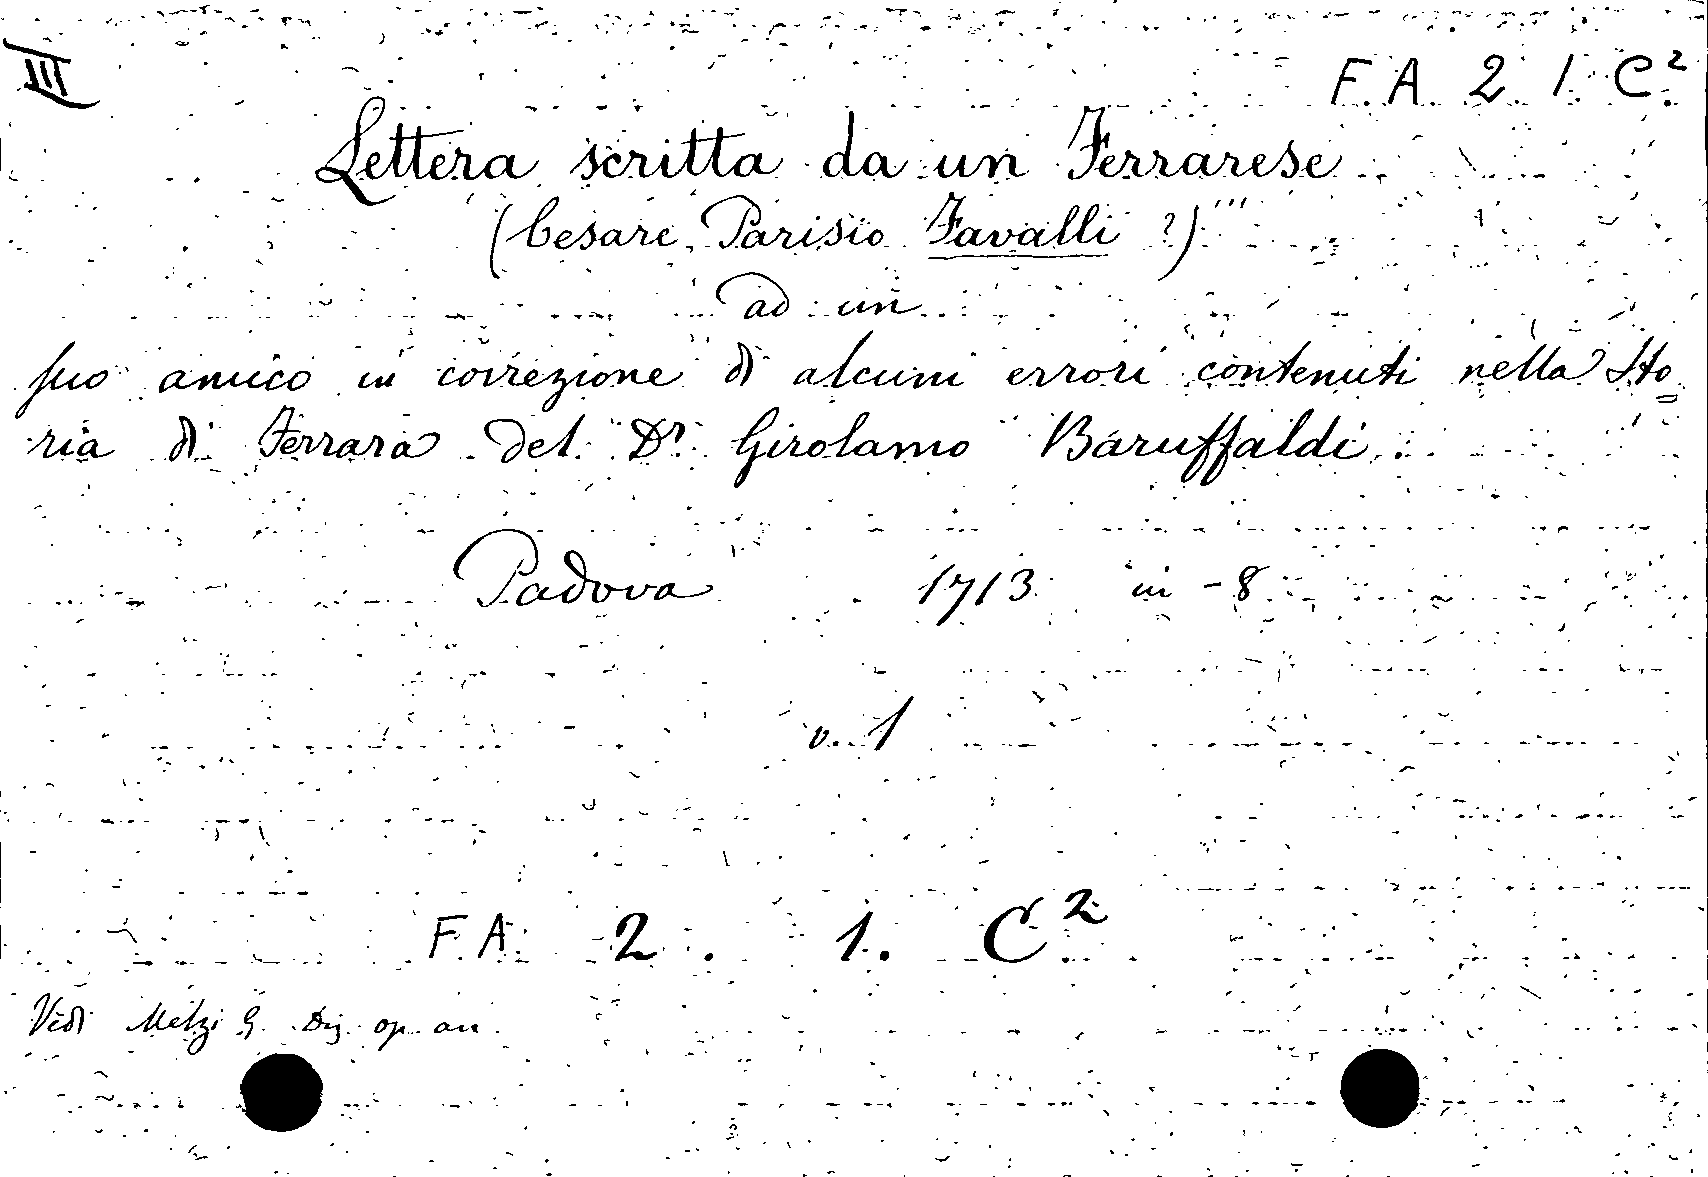 III
F. A. 2 1. C.²
Lettera scritta da un Ferrarese
(Cesare Parisio Favalli ?)
ad un
suo amico in correzione di alcuni errori contenuti nella Sto=
ria di Ferrara del Dr. Girolamo Baruffaldi.
Padova 1713 in - 8
v. 1
F. A. 2. 1. C.²
Vedi Melzi G. Diz. op. an.